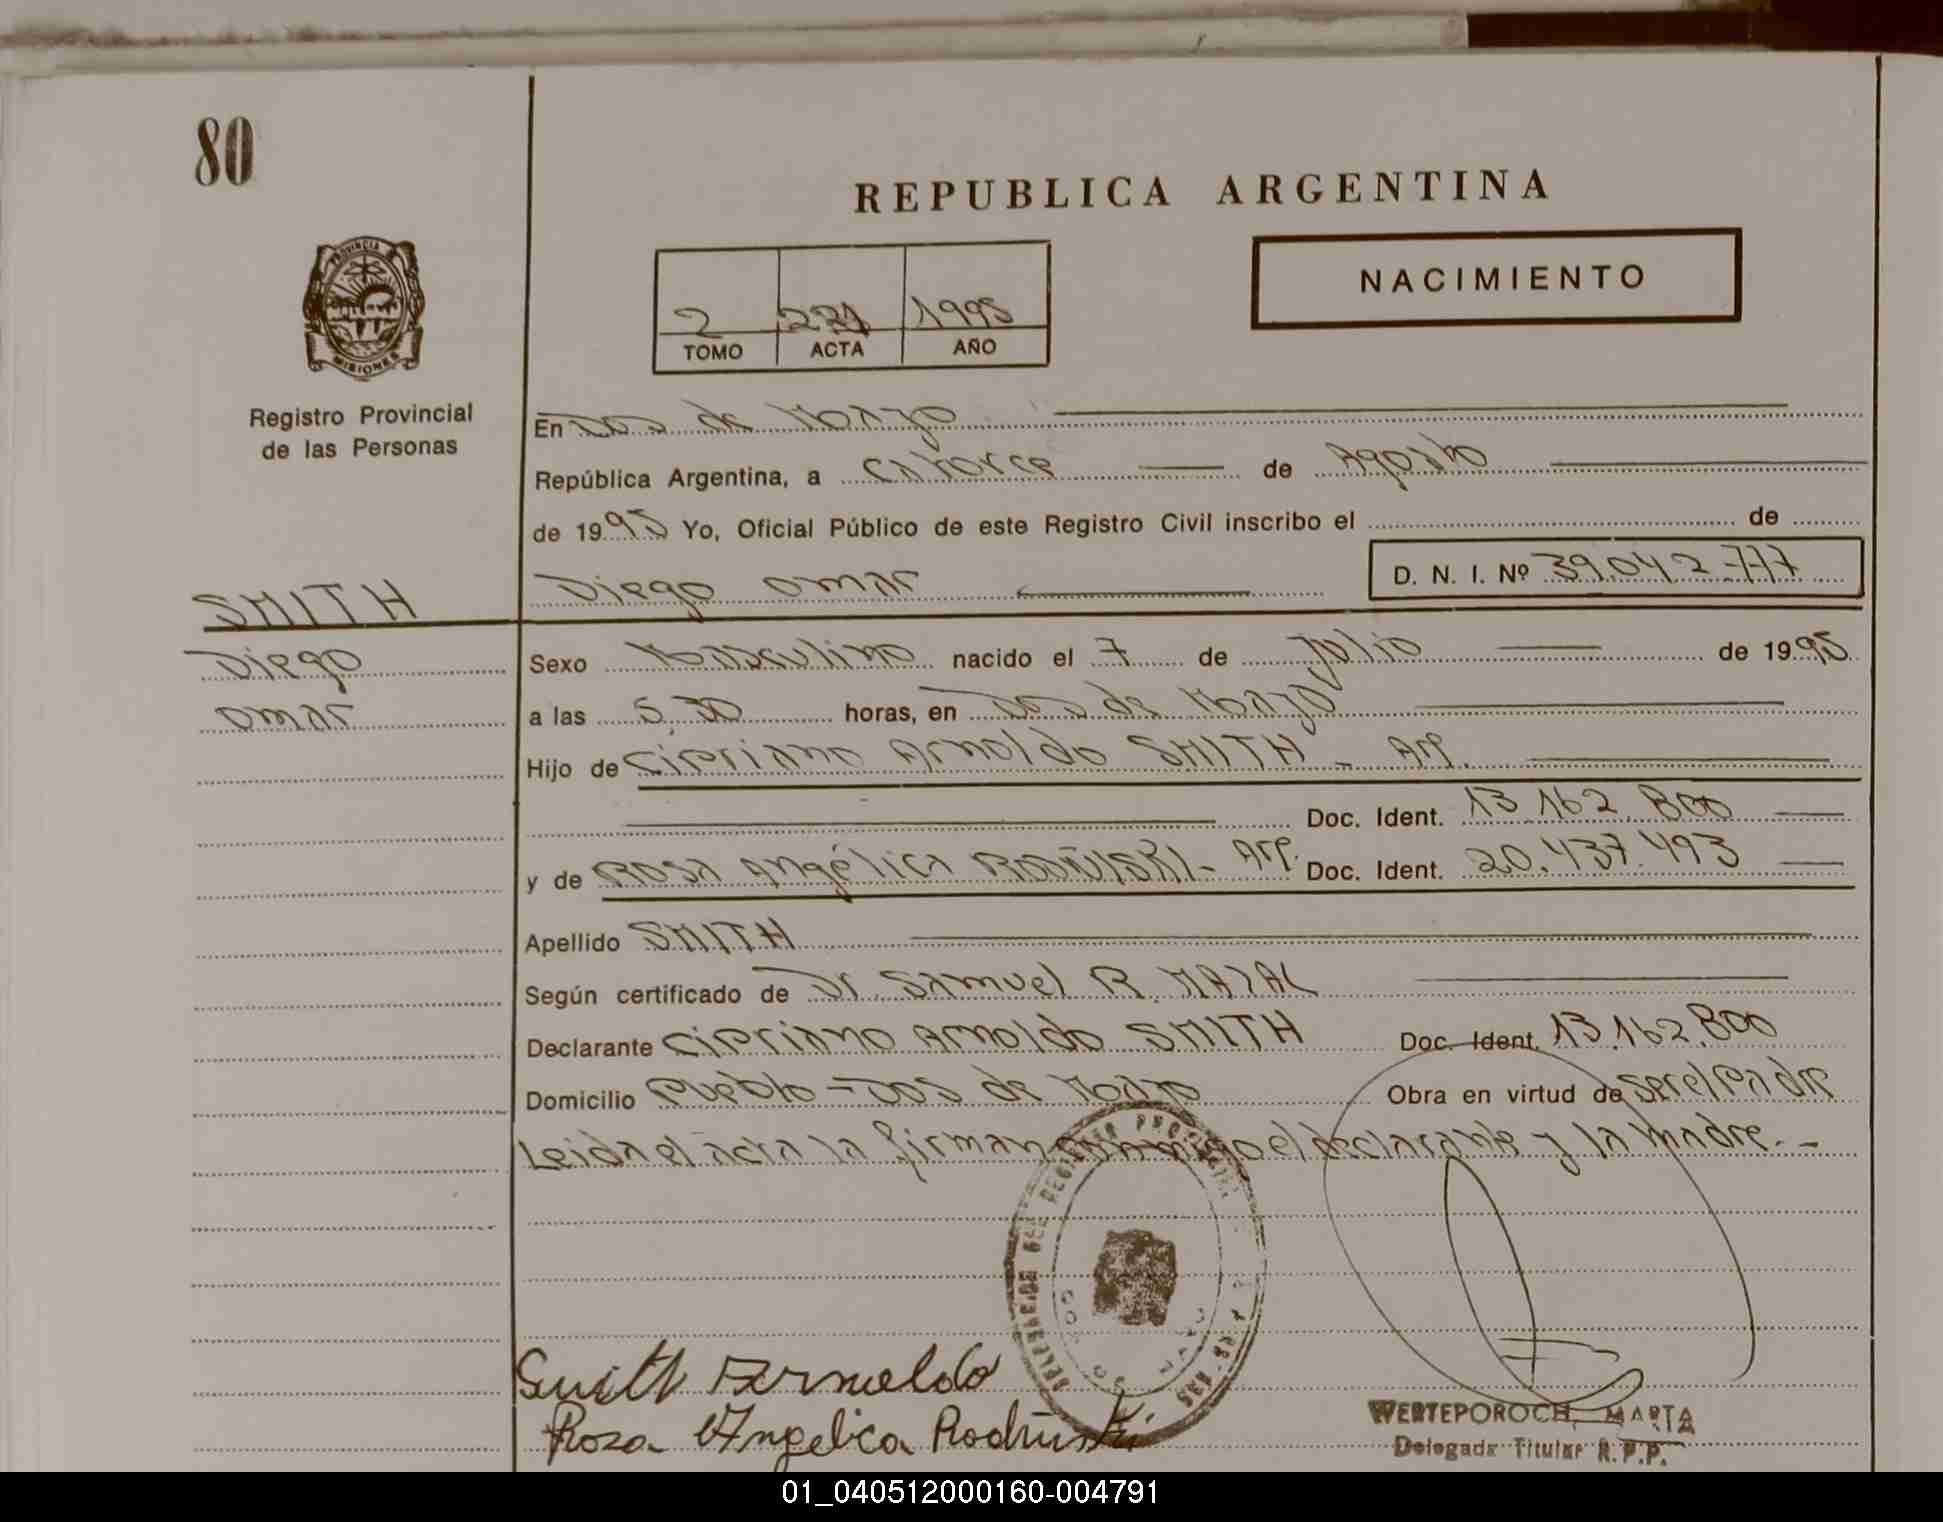 80
REPUBLICA ARGENTINA
NACIMIENTO
2 1995
TOMO ACTA AÑO
PROVINCIA
MISIONES
Registro Provincial
de las Personas
En Dos de Marzo
República Argentina, a catorce de Agosto
de 1995 Yo, Oficial Público de este Registro Civil inscribo el de
D. N. I. Nº 39.042.777
SMITH Diego Omar
Diego Sexo Masculino nacido el 7 de Julio de 1995
Omar a las 5,30 horas, en Dos de Marzo
Hijo de Cipriano Arnoldo SMITH - Arg.
Doc. Ident. 13.162.800
y de Rosa Angélica - Arg. Doc. Ident. 20.437.493
Apellido SMITH
Según certificado de Dr. Samuel R.
Declarante Cipriano Arnoldo SMITH Doc. Ident. 13.162.800
Domicilio Pueblo - Dos de Marzo Obra en virtud de ser el Padre
Leida el acta la firman conmigo el declarante y la madre.-
Smith Arnoldo
Rosa Angelica
WERTEPOROCH, MARTA
Delegada Titular R.P.P.
01_040512000160-004791